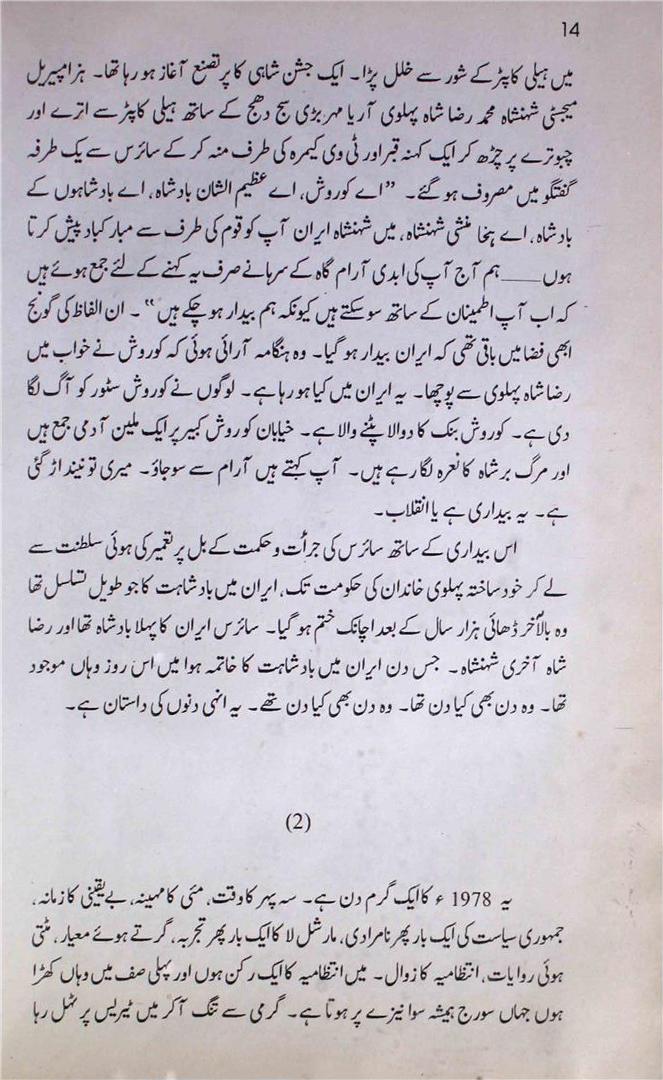 14
میں ہیلی کاپٹر کے شور سے خلل پڑا۔ ایک جشن شاہی کا پر تصنع آغاز ہو رہا تھا۔ ہز امپیریل
میجسٹی شہنشاہ محمد رضا شاہ پہلوی آریا مہر بڑی سج دھج کے ساتھ ہیلی کاپٹر سے اترے اور
چبوترے پر چڑھ کر ایک کہنہ قبر اور ٹی وی کیمرہ کی طرف منہ کر کے سائرس سے یک طرفہ
گفتگو میں مصروف ہو گئے۔ ”اے کوروش، اے عظیم الشان بادشاہ، اے بادشاہوں کے
بادشاہ، اے ہخا منشی شہنشاہ، میں شہنشاہ ایران آپ کو قوم کی طرف سے مبارکباد پیش کرتا
ہوں ____ ہم آج آپ کی ابدی آرام گاہ کے سرہانے صرف یہ کہنے کے لئے جمع ہوئے ہیں
کہ اب آپ اطمینان کے ساتھ سو سکتے ہیں کیونکہ ہم بیدار ہو چکے ہیں“۔ ان الفاظ کی گونج
ابھی فضا میں باقی تھی کہ ایران بیدار ہو گیا۔ وہ ہنگامہ آرائی ہوئی کہ کوروش نے خواب میں
رضا شاہ پہلوی سے پوچھا۔ یہ ایران میں کیا ہو رہا ہے۔ لوگوں نے کوروش سٹور کو آگ لگا
دی ہے۔ کوروش بنک کا دوالا پٹنے والا ہے۔ خیابان کوروش کبیر پر ایک ملین آدمی جمع ہیں
اور مرگ بر شاہ کا نعرہ لگا رہے ہیں۔ آپ کہتے ہیں آرام سے سو جاؤ۔ میری تو نیند اڑ گئی
ہے۔ یہ بیداری ہے یا انقلاب۔
اس بیداری کے ساتھ سائرس کی جرأت و حکمت کے بل پر تعمیر کی ہوئی سلطنت سے
لے کر خود ساختہ پہلوی خاندان کی حکومت تک، ایران میں بادشاہت کا جو طویل تسلسل تھا
وہ بالآخر ڈھائی ہزار سال کے بعد اچانک ختم ہو گیا۔ سائرس ایران کا پہلا بادشاہ تھا اور رضا
شاہ آخری شہنشاہ۔ جس دن ایران میں بادشاہت کا خاتمہ ہوا میں اس روز وہاں موجود
تھا۔ وہ دن بھی کیا دن تھا۔ وہ دن بھی کیا دن تھے۔ یہ انہی دنوں کی داستان ہے۔
(2)
یہ 1978 ء کا ایک گرم دن ہے۔ سہ پہر کا وقت، مئی کا مہینہ، بے یقینی کا زمانہ،
جمہوری سیاست کی ایک بار پھر نامرادی، مارشل لا کا ایک بار پھر تجربہ، گرتے ہوئے معیار، مٹتی
ہوئی روایات، انتظامیہ کا زوال۔ میں انتظامیہ کا ایک رکن ہوں اور پہلی صف میں وہاں کھڑا
ہوں جہاں سورج ہمیشہ سوا نیزے پر ہوتا ہے۔ گرمی سے تنگ آکر میں ٹیریس پر ٹہل رہا